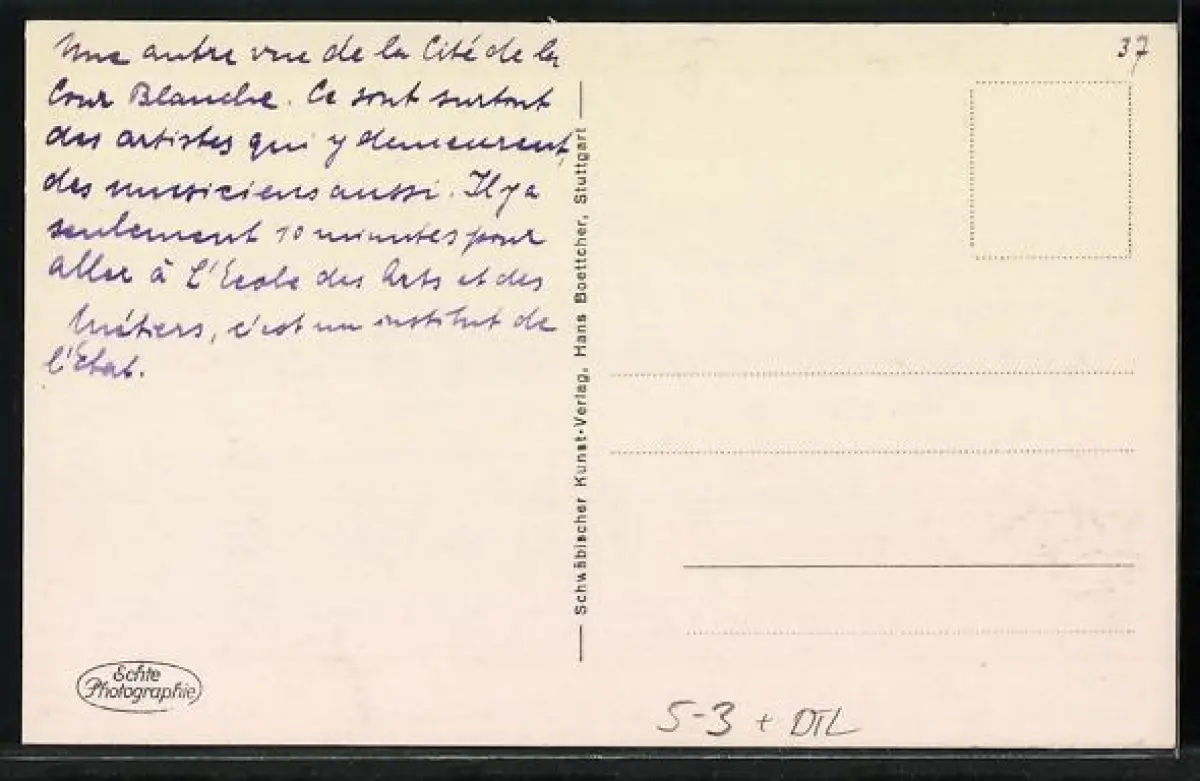 Une autre vue de la Cité de la
Cour Blanche. Ce sont surtout
des artistes qui y demeurent,
des musiciens aussi. Il y a
seulement 10 minutes pour
aller à l'Ecole des Arts et des
Métiers, c'est un institut de
l'Etat.
Echte
Photographie
Schwäbischer Kunst-Verlag, Hans Boettcher, Stuttgart
37
5-3 + DTL